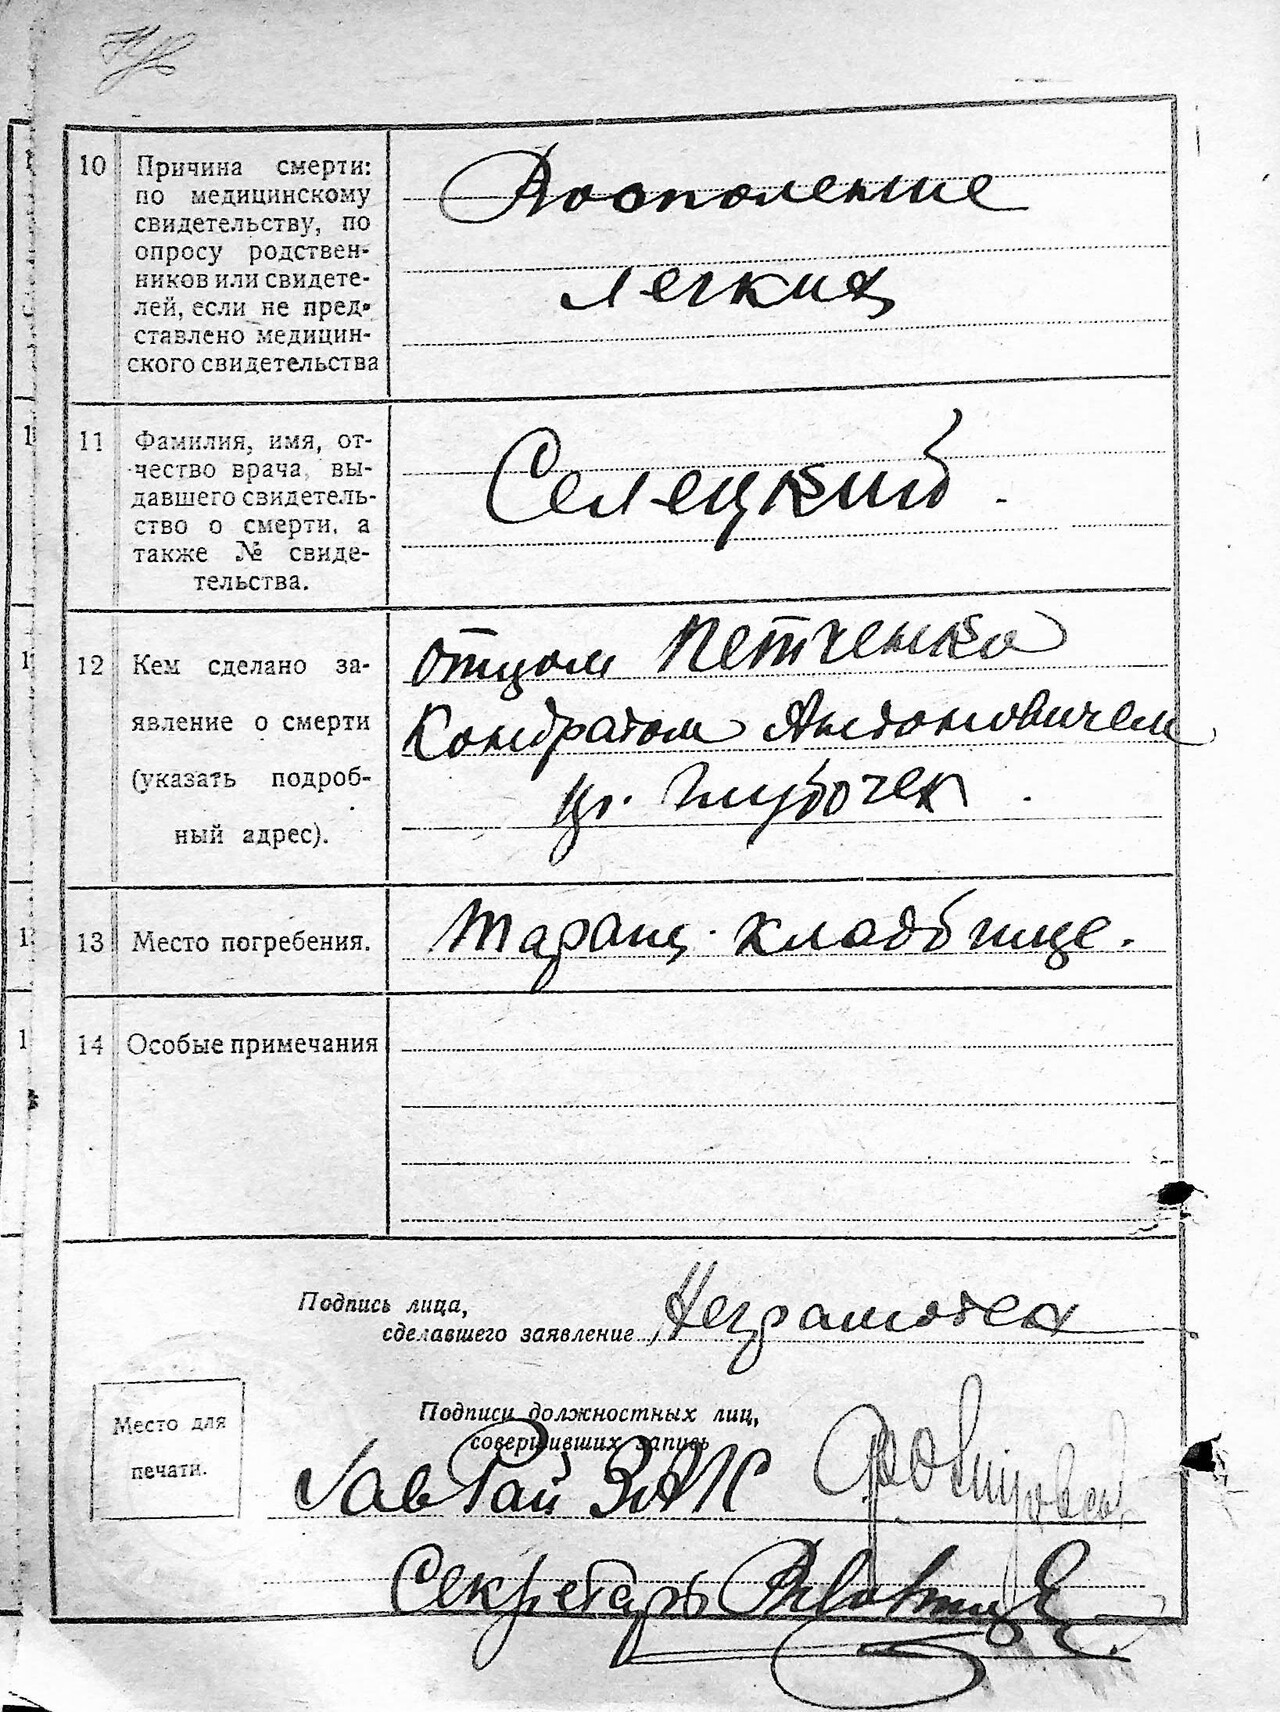 10 Причина смерти:
по медицинскому
свидетельству, по
опросу родствен-
ников или свидете-
лей, если не пред-
ставлено медицин-
ского свидетельства
Восполение
легких
11 Фамилия, имя, от-
чество врача, вы-
давшего свидетель-
ство о смерти, а
также № свиде-
тельства.
Селецкий
12 Кем сделано за-
явление о смерти
(указать подроб-
ный адрес).
отцом Петченко
Кондратом Антоновичем
Глубочек
13 Место погребения.
Таращ. кладбище.
14 Особые примечания
Подпись лица,
сделавшего заявление Неграмотен
Место для
печати.
Подписи должностных лиц,
совершивших запись
Зав Рай ЗАК
Секретарь